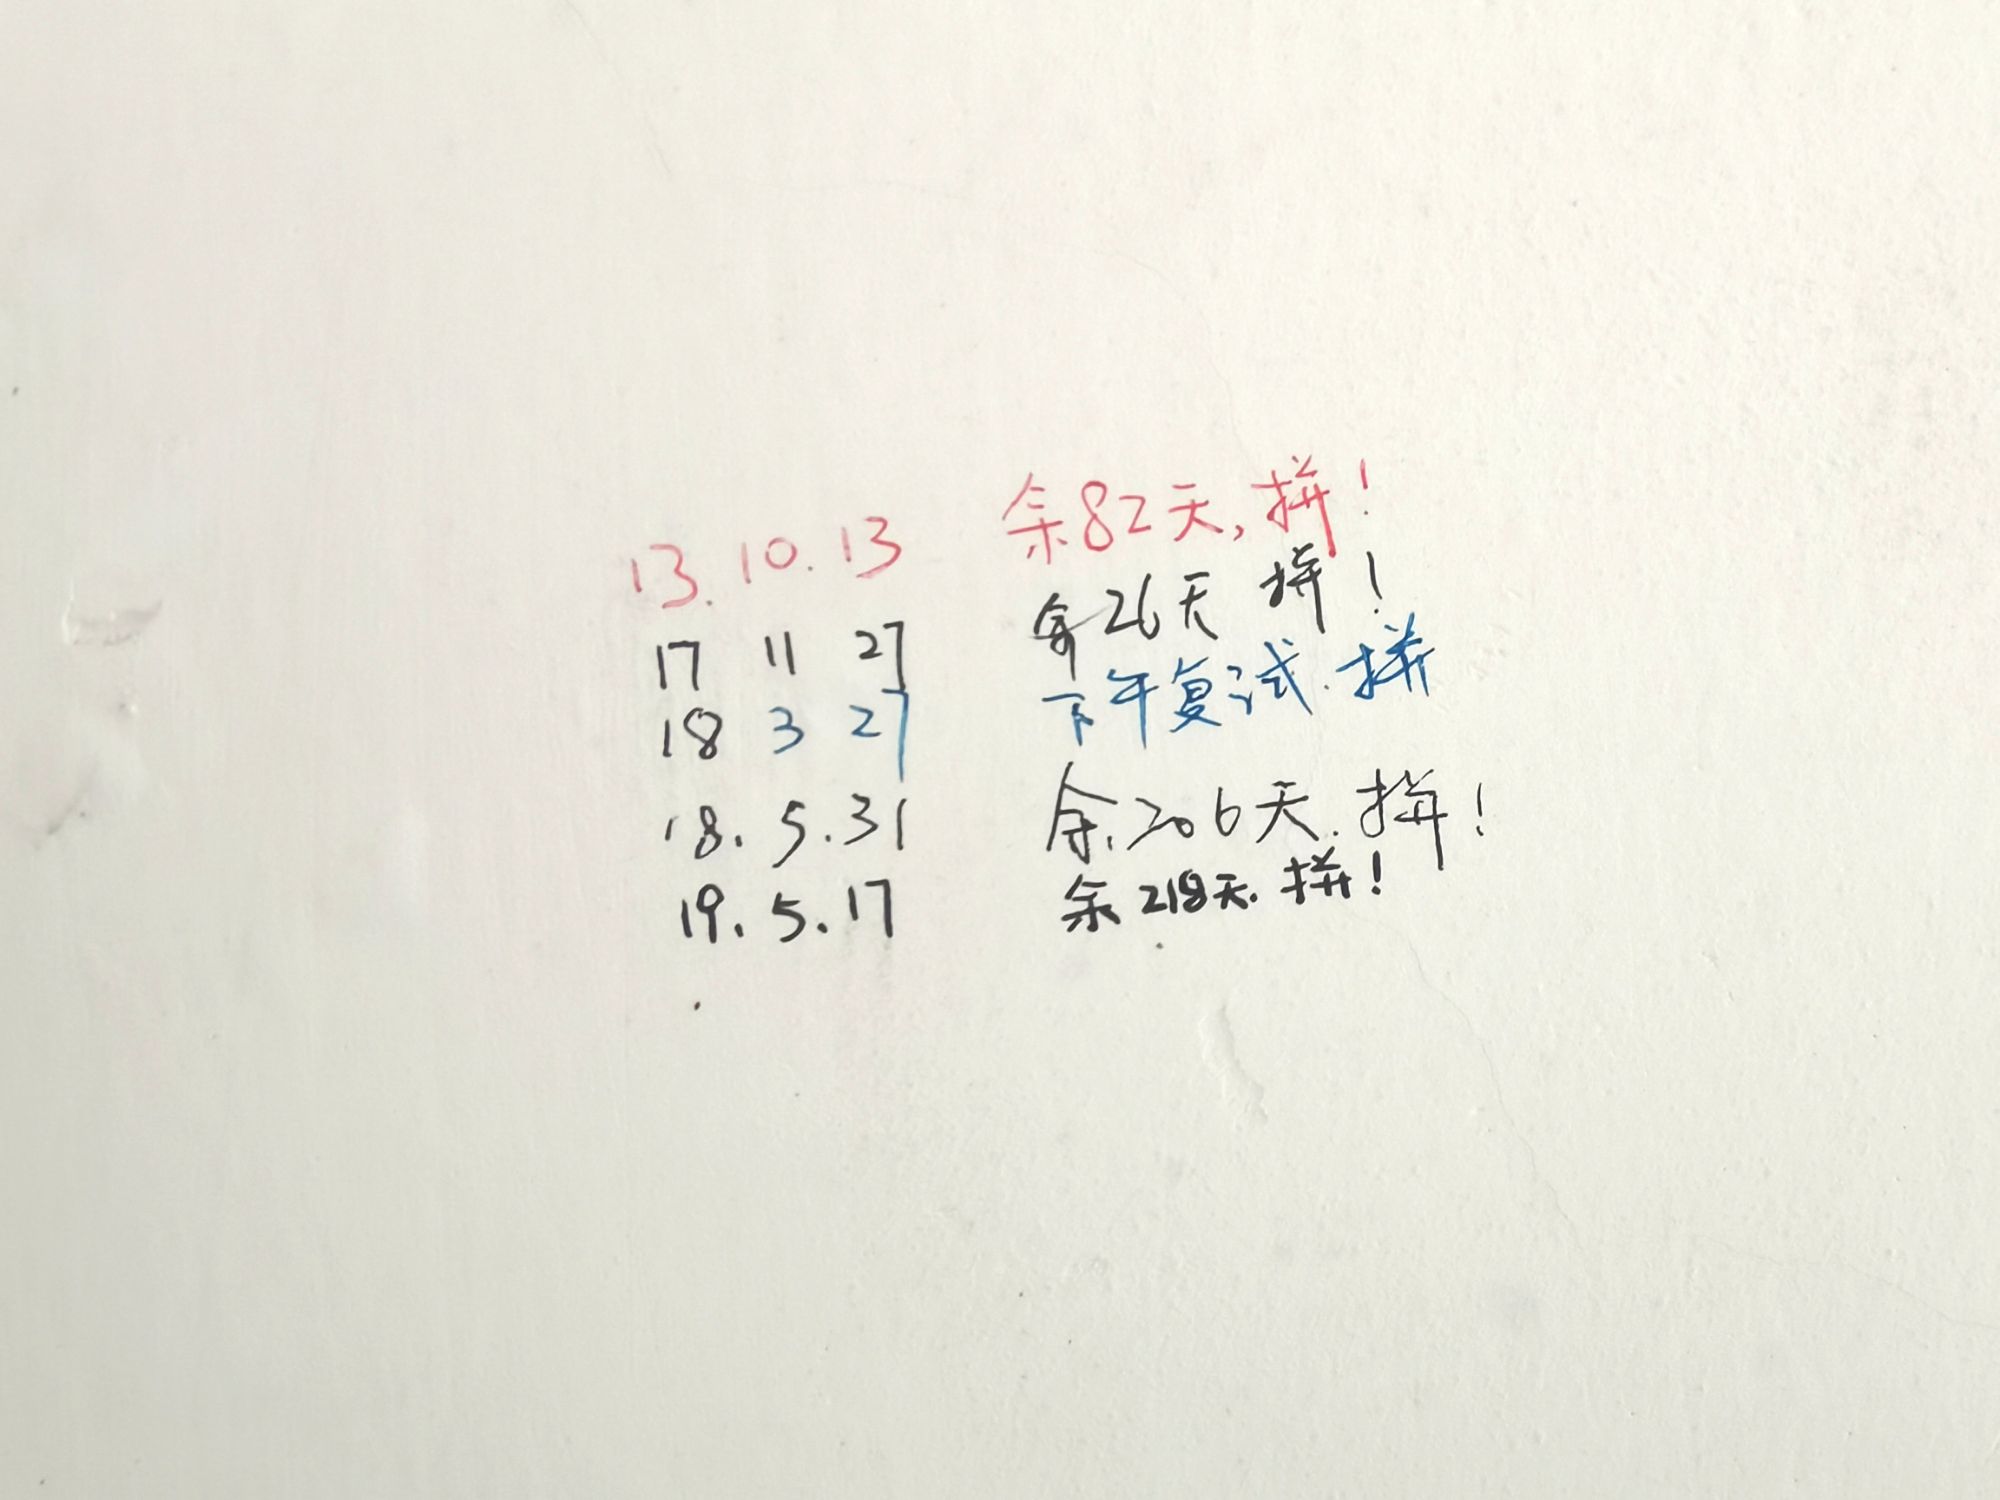 13.10.13 余82天,拼!
17 11 27 余26天 拼!
18 3 27 下午复试.拼
18.5.31 余206天.拼!
19.5.17 余218天.拼!